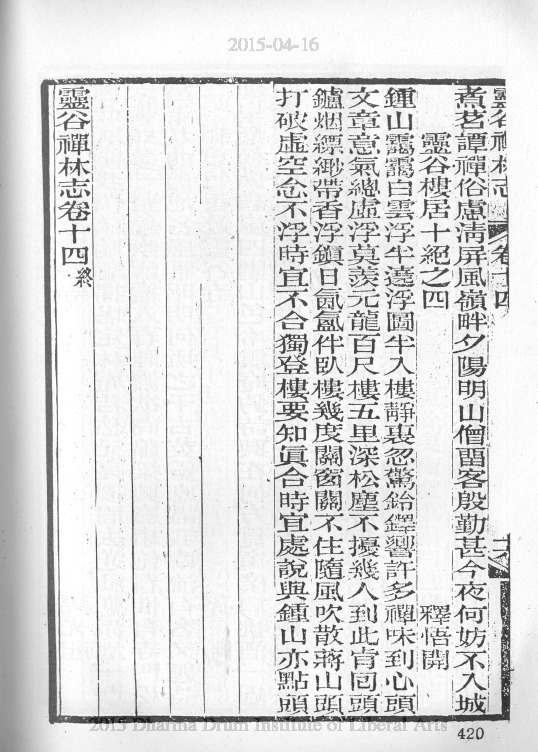 2015-04-16
靈谷禪林志 卷十四 十六
煮茗譚禪俗慮淸屏風嶺畔夕陽明山僧畱客殷勤甚今夜何妨不入城
靈谷樓居十絕之四 釋悟開
鍾山靄靄白雲浮半遶浮圖半入樓靜裏忽驚鈴鐸響許多禪味到心頭
文章意氣總虛浮莫羨元龍百尺樓五里深松塵不擾幾人到此肯回頭
鑪烟縹緲帶香浮鎭日氤氳伴臥樓幾度關窗關不住隨風吹散蔣山頭
打破虛空念不浮時宜不合獨登樓要知眞合時宜處說與鍾山亦點頭
靈谷禪林志卷十四 終
2015 Dharma Drum Institute of Liberal Arts
420